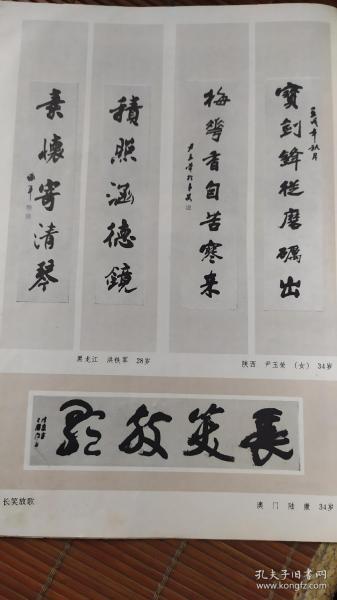 寶劍鋒從磨礪出
壬戌年秋月
梅花香自苦寒来
積照涵德鏡
素懷寄清琴
黑龙江 洪铁军 28岁
陕西 尹玉荣 (女) 34岁
長笑放歌
长笑放歌
澳门 陆康 34岁
孔夫子旧书网